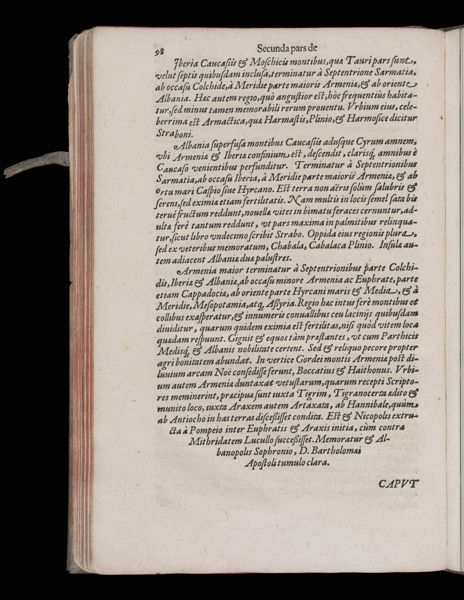 98 Secunda pars de
Iberia Caucasiis & Moschicis montibus, qua Tauri pars sunt,
velut septis quibusdam inclusa, terminatur à Septentrione Sarmatia,
ab occasu Colchide, à Meridie parte maioris Armeniæ, & ab oriente
Albania. Hac autem regio, quò angustior est, hòc frequentius habita-
tur, sed minus tamen memorabili rerum proventu. Vrbium eius, cele-
berrima est Armactica, qua Harmastis, Plinio, & Harmosice dicitur
Straboni.
Albania superfusa montibus Caucasiis adusque Cyrum amnem,
vbi Armenia & Iberia confinium est, descendit, clarisq́, amnibus è
Caucaso venientibus perfunditur. Terminatur à Septentrionibus
Sarmatia, ab occasu Iberia, à Meridie parte maioris Armenia, & ab
ortu mari Caspio siue Hyrcano. Est terra non aëris solùm salubris &
serens, sed eximia etiam fertilitatis. Nam multis in locis semel sata bis
terue fructum reddunt, nouella vites in bimatu feraces cernuntur, ad-
ulta ferè tantum reddunt, vt pars maxima in palmitibus relinqua-
tur, sicut libro vndecimo scribit Strabo. Oppida eius regionis plura,
sed ex veteribus memoratum, Chabala, Cabalaca Plinio. Insula au-
tem adiacent Albania dua palustres.
Armenia maior terminatur à Septentrionibus parte Colchi-
dis, Iberia & Albania, ab occasu minore Armenia ac Euphrate, parte
etiam Cappadocia, ab oriente parte Hyrcani maris & Media, & à
Meridie, Mesopotamia, atq́, Assyria. Regio hac intus ferè montibus et
collibus exasperatur, & innumeris conuallibus ceu lacinijs quibusdam
diuiditur, quarum quidem eximia est fertilitas, nisi quòd vitem loca
quædam respuunt. Gignit & equos tàm præstantes, vt cum Parthicis
Medisq́, & Albanis nobilitate certent. Sed & reliquo pecore propter
agri bonitatem abundat. In vertice Gordei montis Armenia post di-
luuium arcam Noë consedisse ferunt, Boccatius & Haithonus. Vrbi-
um autem Armenia duntaxat vetustarum, quarum recepti Scripto-
res meminerint, præcipua sunt iuxta Tigrim, Tigranocerta edito &
munito loco, iuxta Araxem autem Artaxata, ab Hannibale, quum
ab Antiocho in has terras discessisset condita. Est & Nicopolis extru-
cta à Pompeio inter Euphratis & Araxis initia, cùm contra
Mithridatem Lucullo successisset. Memoratur & Al-
banopolis Sophronio, D. Bartholomai
Apostoli tumulo clara.
CAPVT